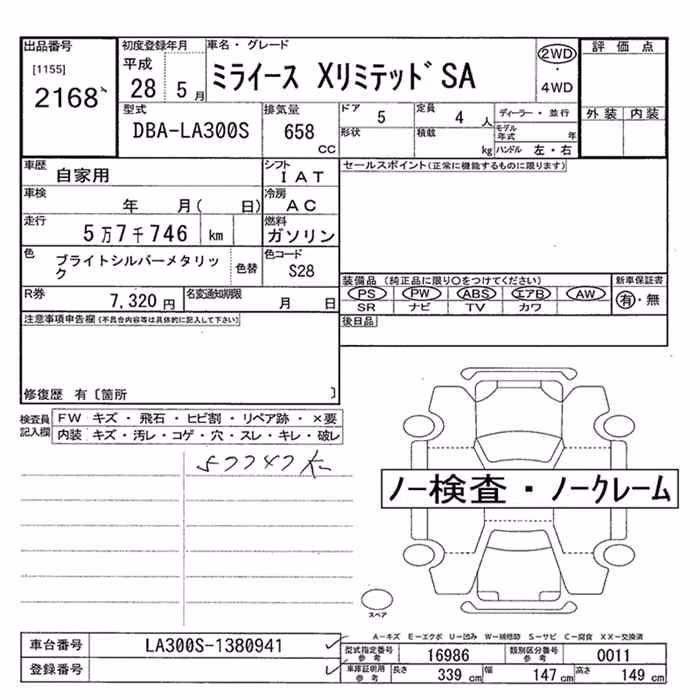 出品番号
[1155]
2168
初度登録年月
平成
28 5月
車名・グレード
ミライース XリミテッドSA
2WD
・
4WD
評価点
外装 内装
型式
DBA-LA300S
排気量
658 CC
ドア 5
定員 4 人
形状
積載 kg
ディーラー・並行
モデル年式 年
ハンドル 左・右
車歴
自家用
シフト
IAT
車検
年 月( 日)
冷房
AC
走行
5万7千746 km
燃料
ガソリン
色
ブライトシルバーメタリック
色替
色コード
S28
R券
7,320円
名変通知期限
月 日
セールスポイント(正常に機能するものに限ります)
装備品 (純正品に限り○をつけてください)
PS PW ABS エアB AW
SR ナビ TV カワ
新車保証書
有・無
後日品
注意事項申告欄(不具合内容等は具体的に記入して下さい)
修復歴 有〔箇所 〕
検査員記入欄
FW キズ・飛石・ヒビ割・リペア跡・×要
内装 キズ・汚レ・コゲ・穴・スレ・キレ・破レ
57747K
ノー検査・ノークレーム
スペア
A-キズ E-エクボ U-凹み W-補修跡 S-サビ C-腐食 XX-交換済
車台番号 LA300S-1380941
登録番号
型式指定番号参考 16986 類別区分番号参考 0011
車庫証明用参考 長さ 339 cm 幅 147 cm 高さ 149 cm